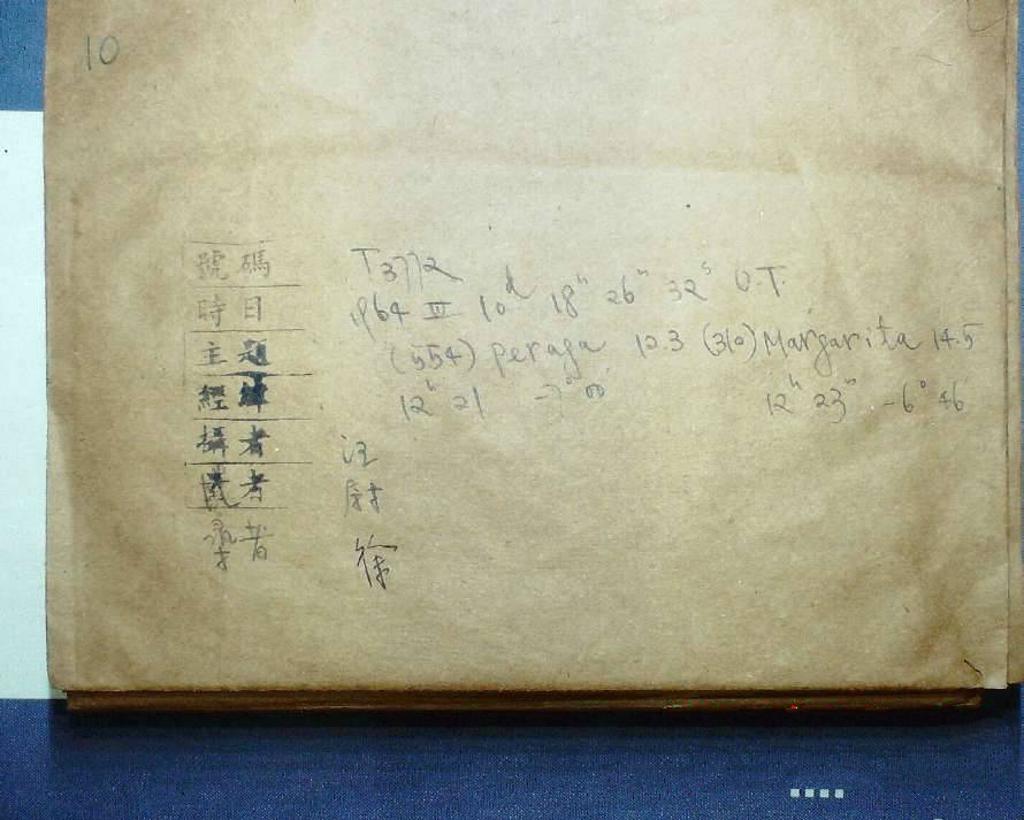 10
號碼 T3772
時日 1964 III 10d 18h 26m 32s U.T.
主題 (554) Peraga 12.3 (310) Margarita 14.5
經緯 12h 21 -7° 00 12h 23m -6° 46
攝者 汪
者
者 徐